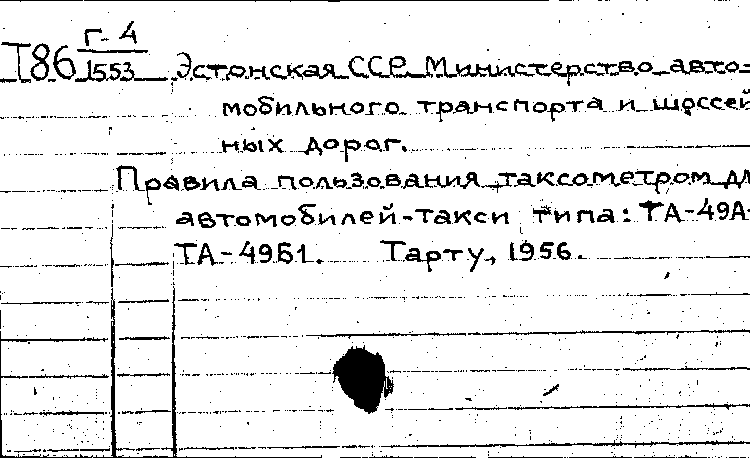 Т86 Г-4
1553 Эстонская ССР. Министерство авто-
мобильного транспорта и шоссей
ных дорог.
Правила пользования таксометром дл
автомобилей-такси типа: ТА-49А-
ТА-49Б1. Тарту, 1956.